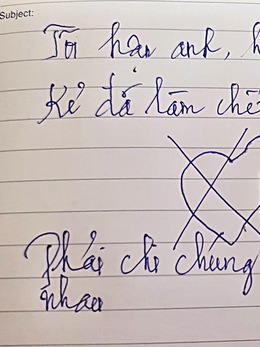 Subject:
Tôi hận anh,
Kẻ đã làm
Phải chi chúng
nhau